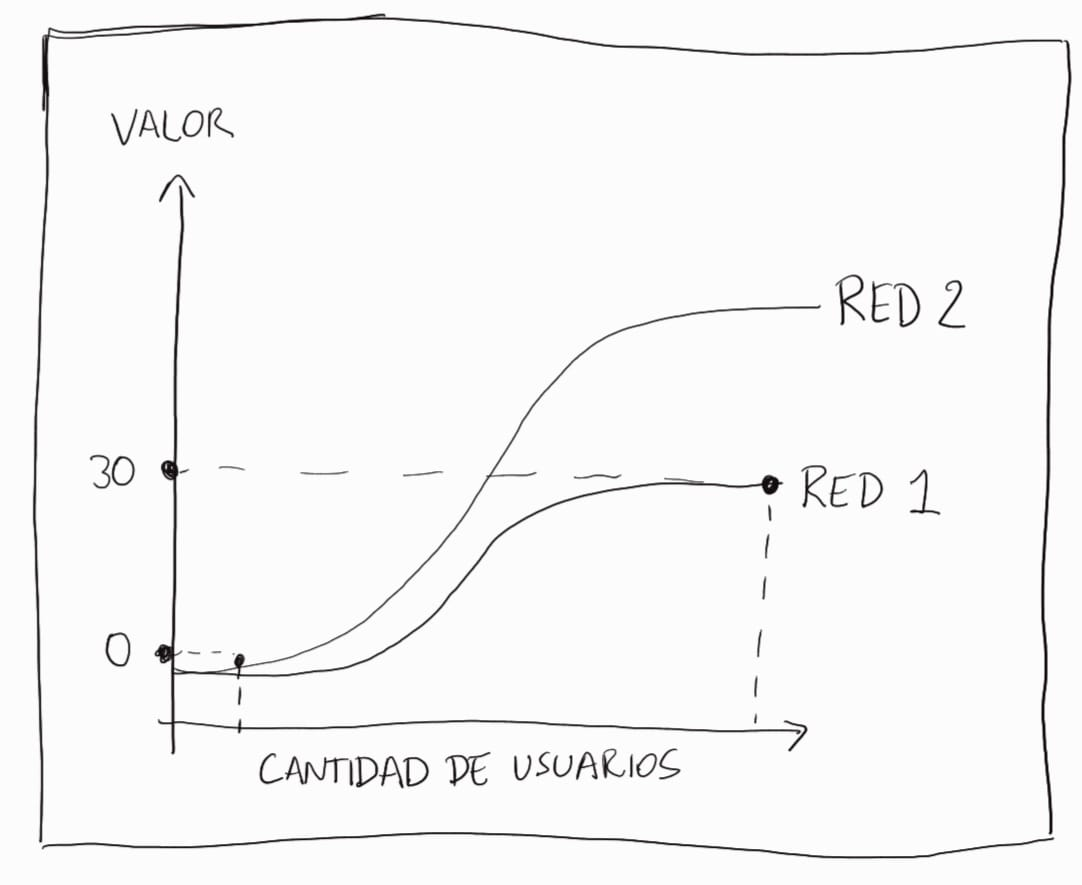 VALOR
RED 2
30
RED 1
0
CANTIDAD DE USUARIOS